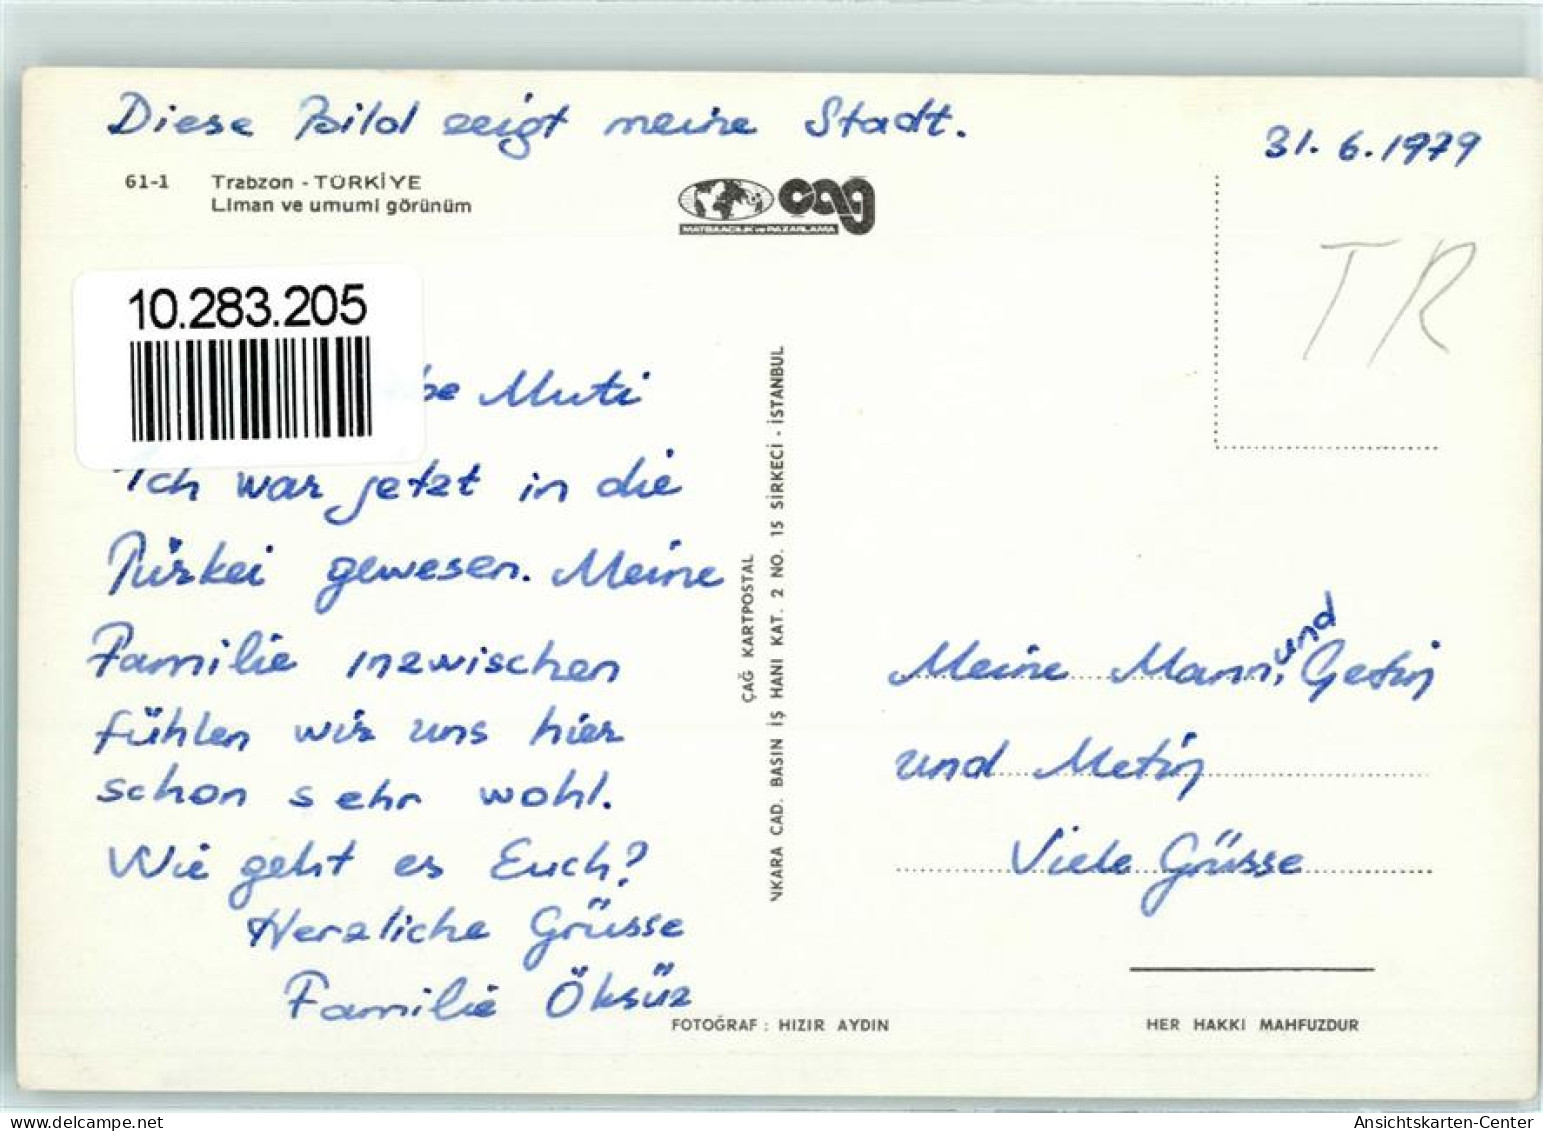 Diese Bild zeigt meine Stadt.
31.6.1979
61-1 Trabzon - TÜRKİYE
Liman ve umumi görünüm
çağ
MATBAACILIK ve PAZARLAMA
TR
10.283.205
be Muti
Ich war jetzt in die
Türkei gewesen. Meine
Familie inzwischen
fühlen wir uns hier
schon sehr wohl.
Wie geht es Euch?
Herzliche Grüsse
Familie Öksüz
ÇAĞ KARTPOSTAL
NKARA CAD. BASIN İŞ HANI KAT. 2 NO. 15 SİRKECİ - İSTANBUL
Meine Mann, und Getin
und Metin
Viele Grüsse
FOTOĞRAF : HIZIR AYDIN
HER HAKKI MAHFUZDUR
Ansichtskarten-Center